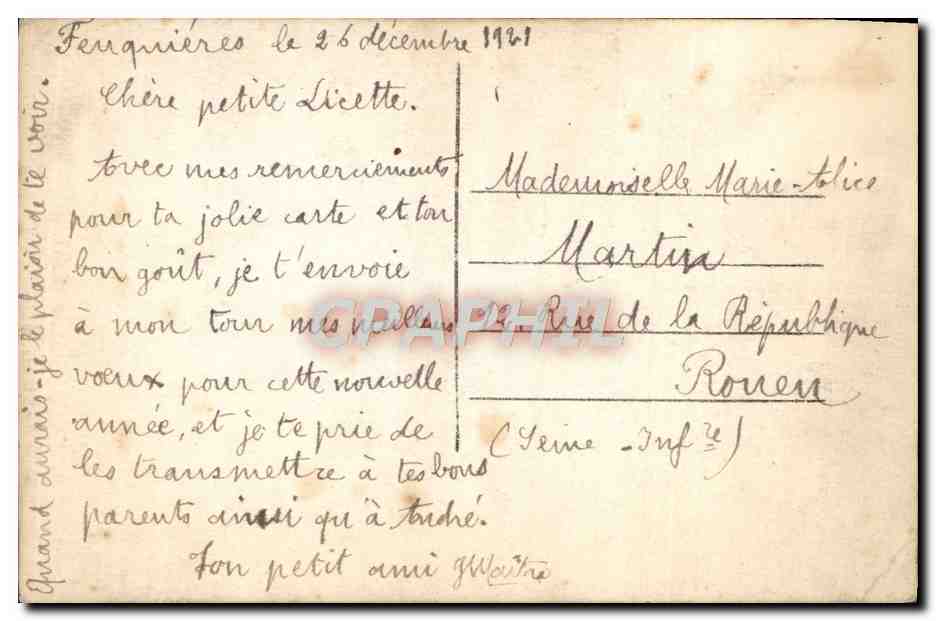 Feuquiéres le 26 décembre 1921
Chère petite Licette.
Avec mes remerciements
pour ta jolie carte et ton
bon goût, je t'envoie
à mon tour mes meilleurs
vœux pour cette nouvelle
année, et je te prie de
les transmettre à tes bons
parents ainsi qu'à André.
Ton petit ami
Quand aurais-je le plaisir de te voir.
Mademoiselle Marie-Alice
Martin
12, Rue de la République
Rouen
(Seine-Infre)
CPAPHIL